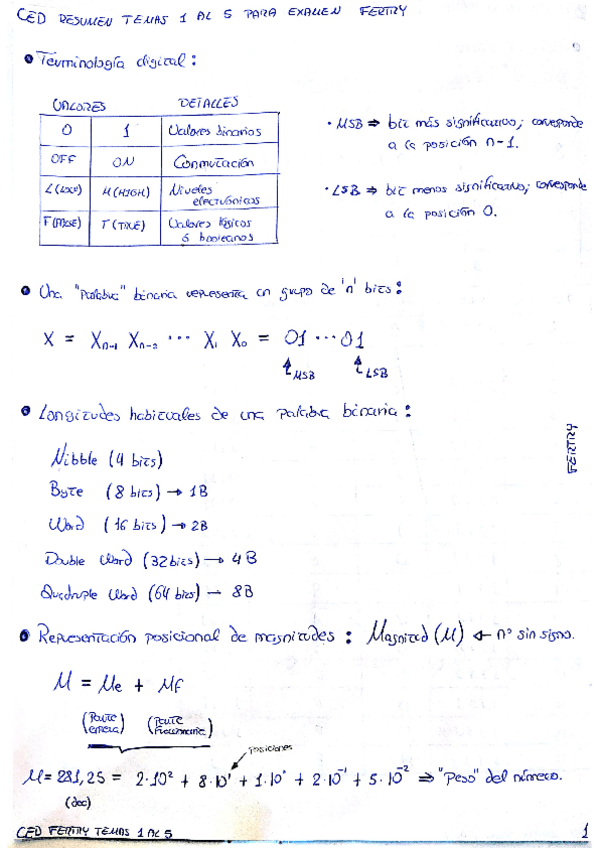 CED RESUMEN TEMAS 1 AL 5 PARA EXAMEN FERTRY
• Terminología digital:
VALORES DETALLES
0 1 Valores binarios
OFF ON Conmutación
L (LOW) H (HIGH) Niveles electrónicos
F (FALSE) T (TRUE) Valores lógicos ó booleanos
• MSB ⇒ bit más significativo; corresponde
a la posición n-1.
• LSB ⇒ bit menos significativo; corresponde
a la posición 0.
• Una "Palabra" binaria representa un grupo de 'n' bits:
X = Xn-1 Xn-2 ... X1 X0 = 01...01
MSB LSB
• Longitudes habituales de una palabra binaria:
Nibble (4 bits)
Byte (8 bits) → 1B
Word (16 bits) → 2B
Double Word (32 bits) → 4B
Quadruple Word (64 bits) — 8B
FERTRY
• Representación posicional de magnitudes: Magnitud (M) ← nº sin signo.
M = Me + Mf
(Parte entera) (Parte fraccionaria)
posiciones
M = 281,25 = 2·10² + 8·10¹ + 1·10⁰ + 2·10⁻¹ + 5·10⁻² ⇒ "Peso" del número.
CED FERTRY TEMAS 1 AL 5 1